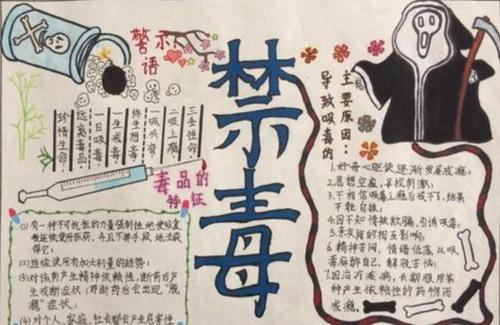 警示
语
禁毒
珍惜生命,
远离毒品
一日吸毒,
一生戒毒,
终生想毒,
一吸兴奋,
二吸上瘾,
三丢性命,
毒品的
特征
(1)有一种不可抗拒的力量强制性地使吸食
者连续使用该药,并且不择手段地去获
得它;
(2)连续使用有加大剂量的趋势;
(3)对该药产生精神依赖性,断药后产
生戒断症状(即断药后会出现"脱
瘾"症状;
(4)对个人、家庭、社会都会产生危害性
导致吸毒的
主要原因:
1.好奇心驱使逐渐发展成瘾;
2.思想空虚,寻找刺激;
3.不相信吸毒上瘾后戒不了,结果
不能自拔;
4.因不知情被欺骗,引诱吸毒;
5.亲友间的相互影响;
6.精神苦闷,情绪低落,以吸
毒麻醉自己,解脱苦恼;
7.因治疗疾病,长期服用某
种产生依赖性的药物而
成瘾。